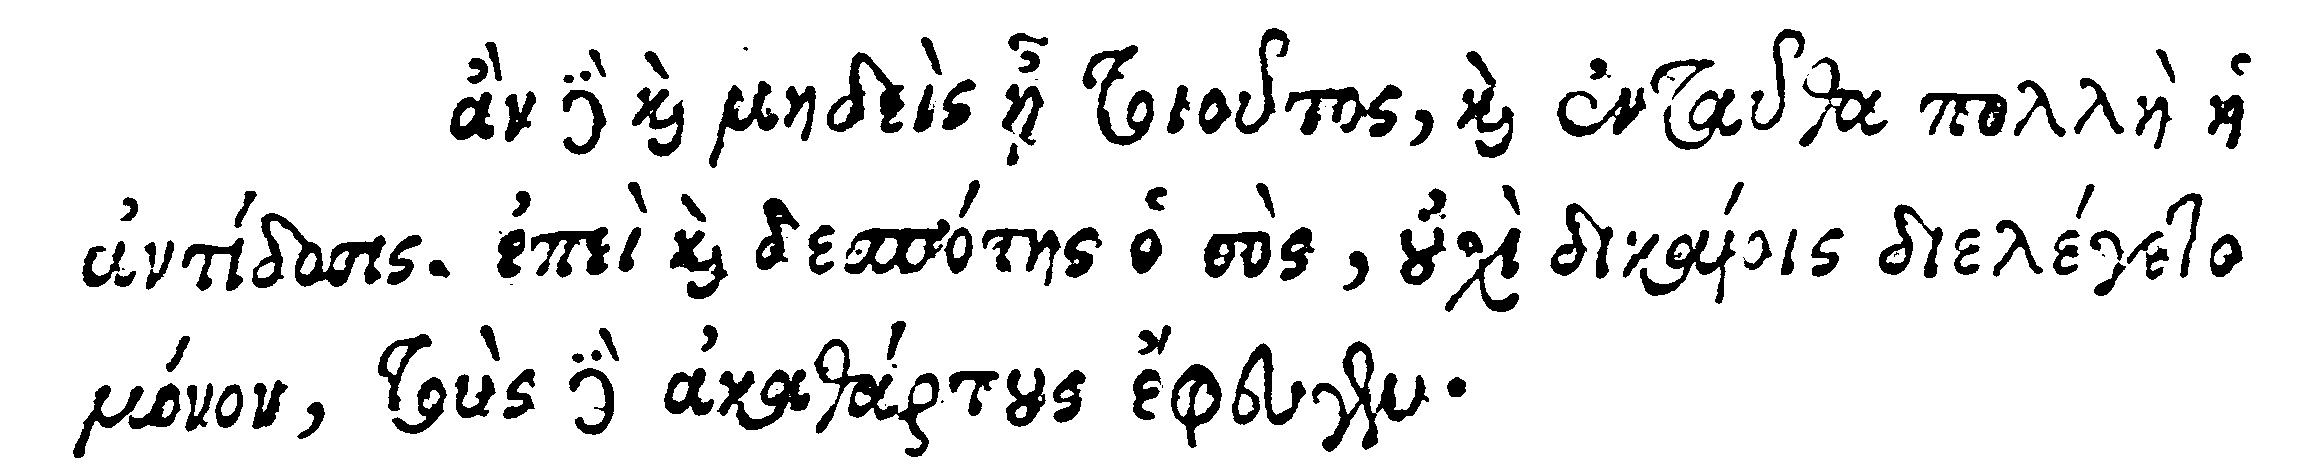 ἂν δὲ καὶ μηδεὶς ᾖ τοιοῦτος, καὶ ἐνταῦθα πολλὴ ἡ
ἀντίδοσις. ἐπεὶ καὶ δεσπότης ὁ σὸς, οὐχὶ δικαίοις διελέγετο
μόνον, τοὺς δὲ ἀκαθάρτους ἔφευγεν.